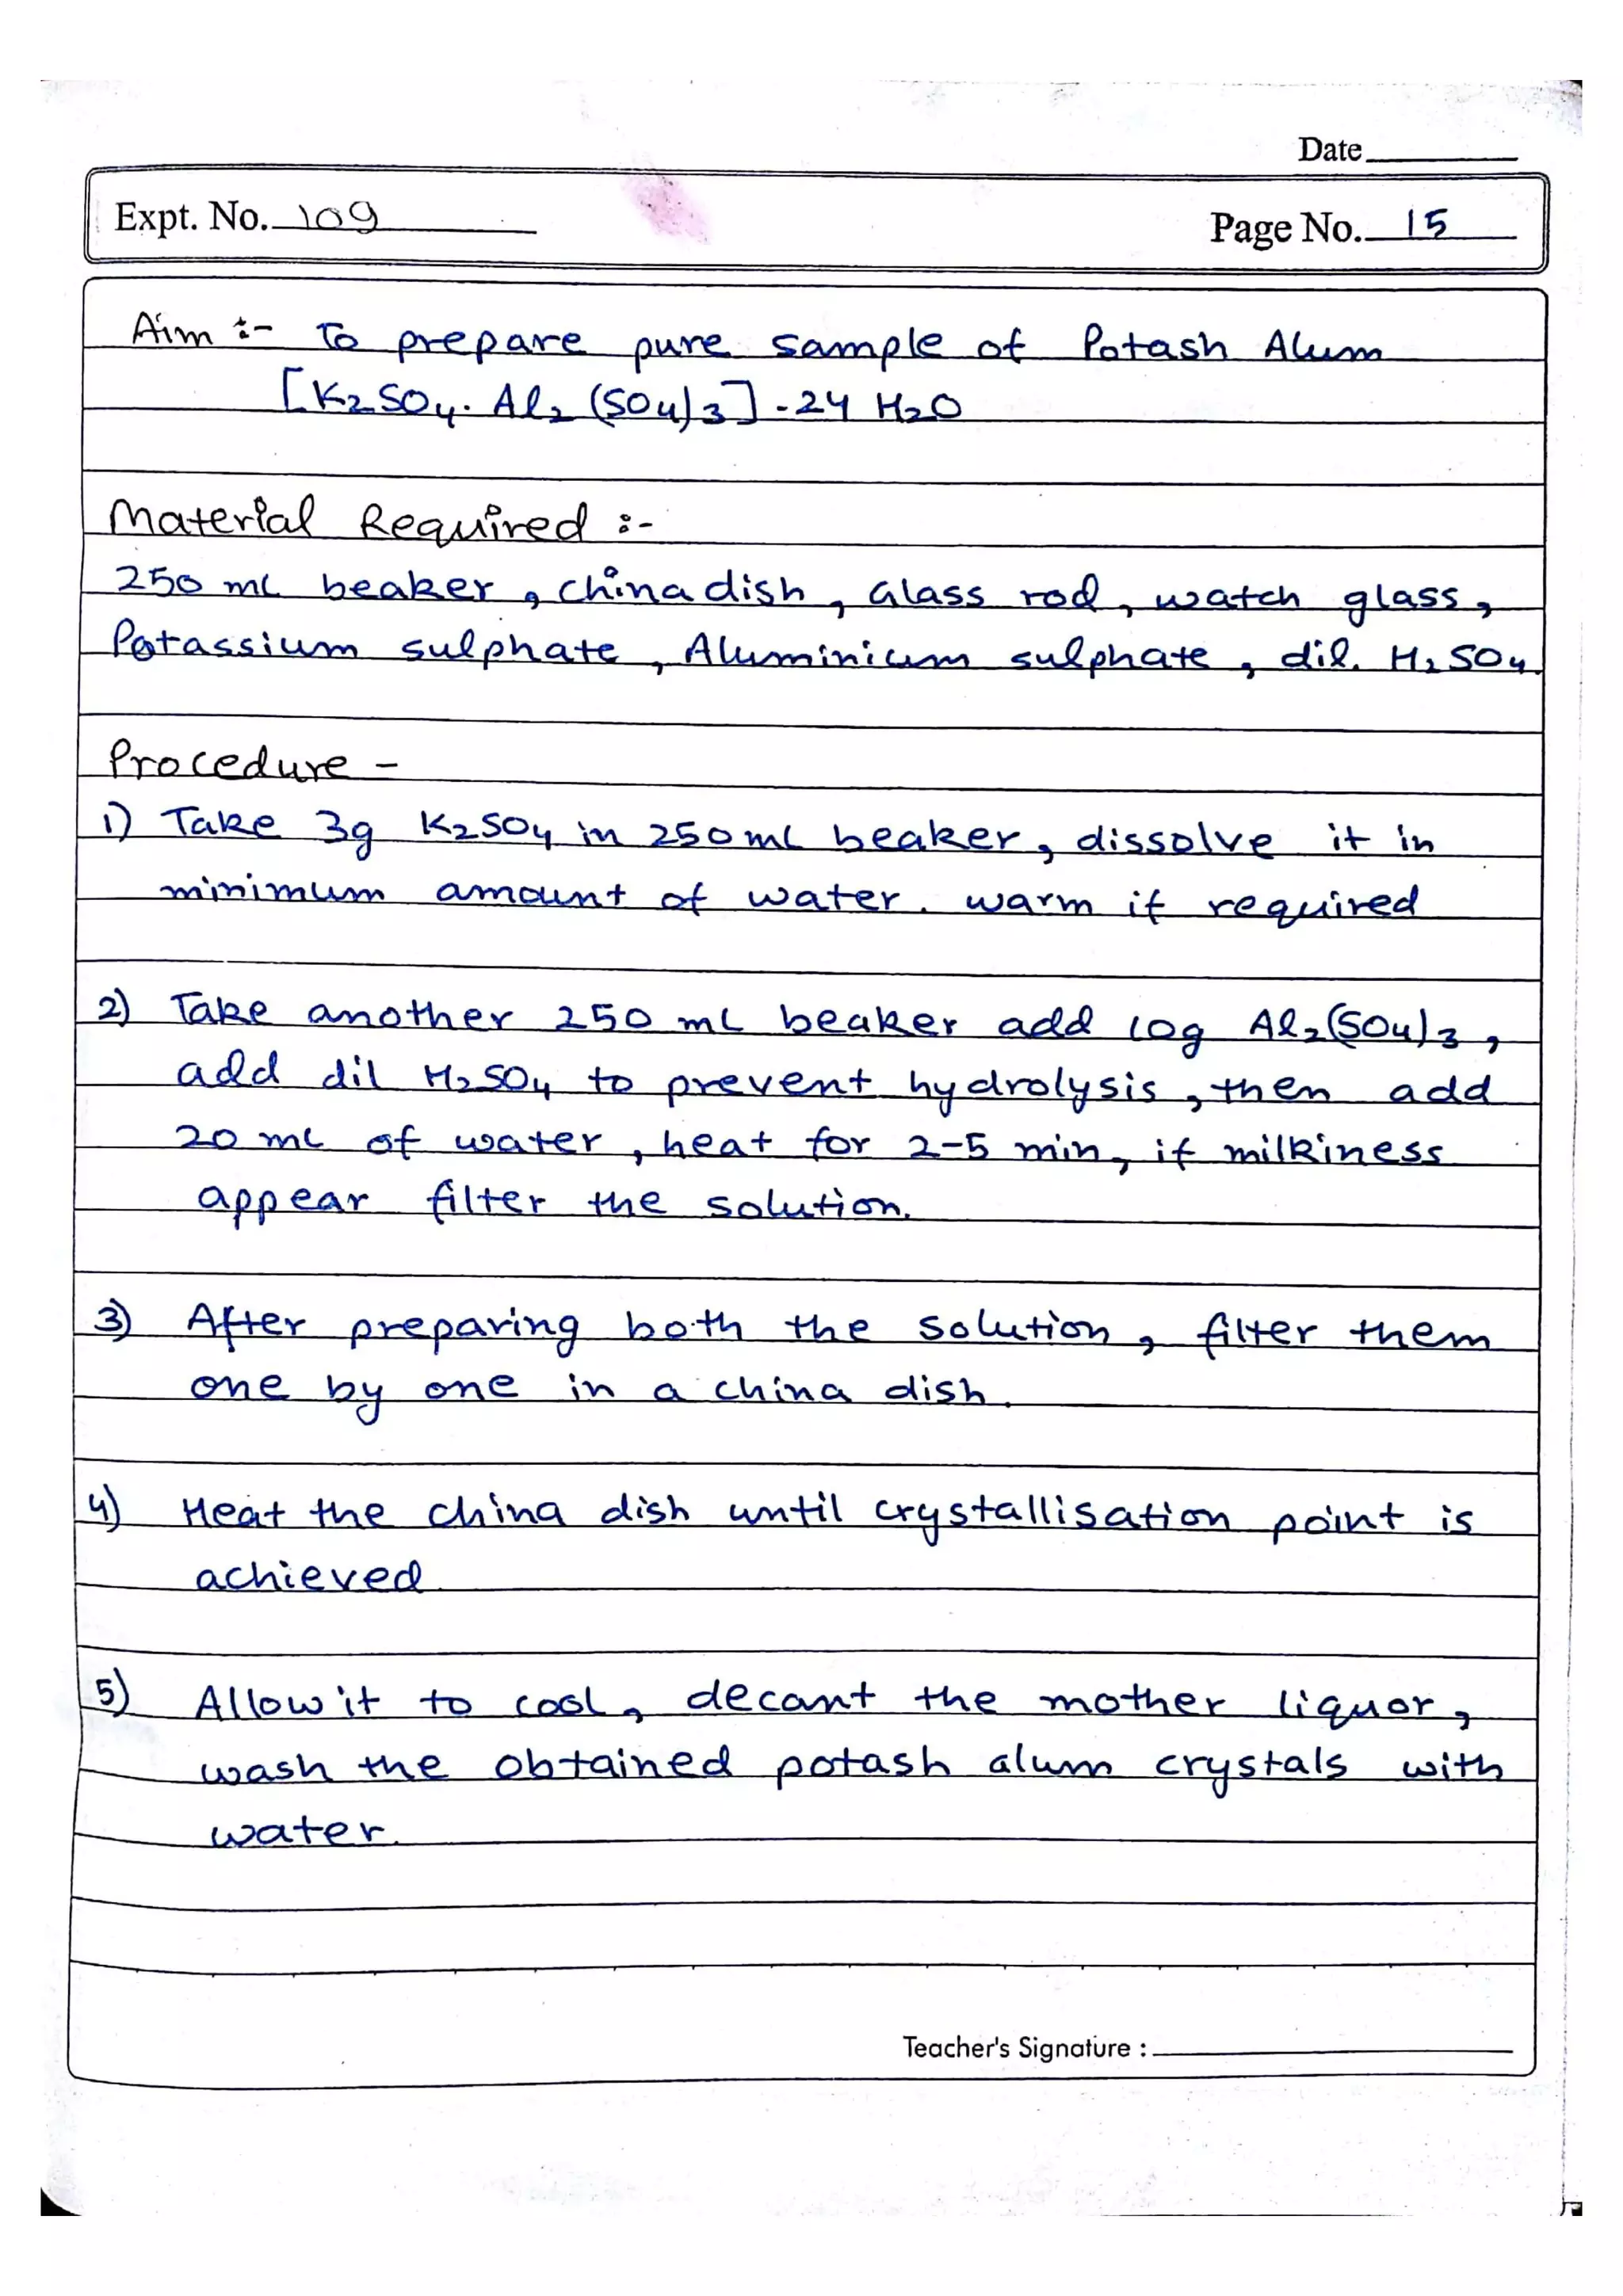 Date
Expt. No. 109
Page No. 15
Aim :- To prepare pure sample of Potash Alum
[K2SO4. Al2 (SO4)3] . 24 H2O
Material Required :-
250 mL beaker, china dish, Glass rod, watch glass,
Potassium sulphate, Aluminium sulphate, dil. H2SO4.
Procedure -
1) Take 3g K2SO4 in 250mL beaker, dissolve it in
minimum amount of water. warm if required
2) Take another 250 mL beaker add 10g Al2(SO4)3,
add dil H2SO4 to prevent hydrolysis, then add
20 mL of water, heat for 2-5 min, if milkiness
appear filter the solution.
3) After preparing both the solution, filter them
one by one in a china dish.
4) Heat the china dish until crystallisation point is
achieved
5) Allow it to cool, decant the mother liquor,
wash the obtained potash alum crystals with
water.
Teacher's Signature :